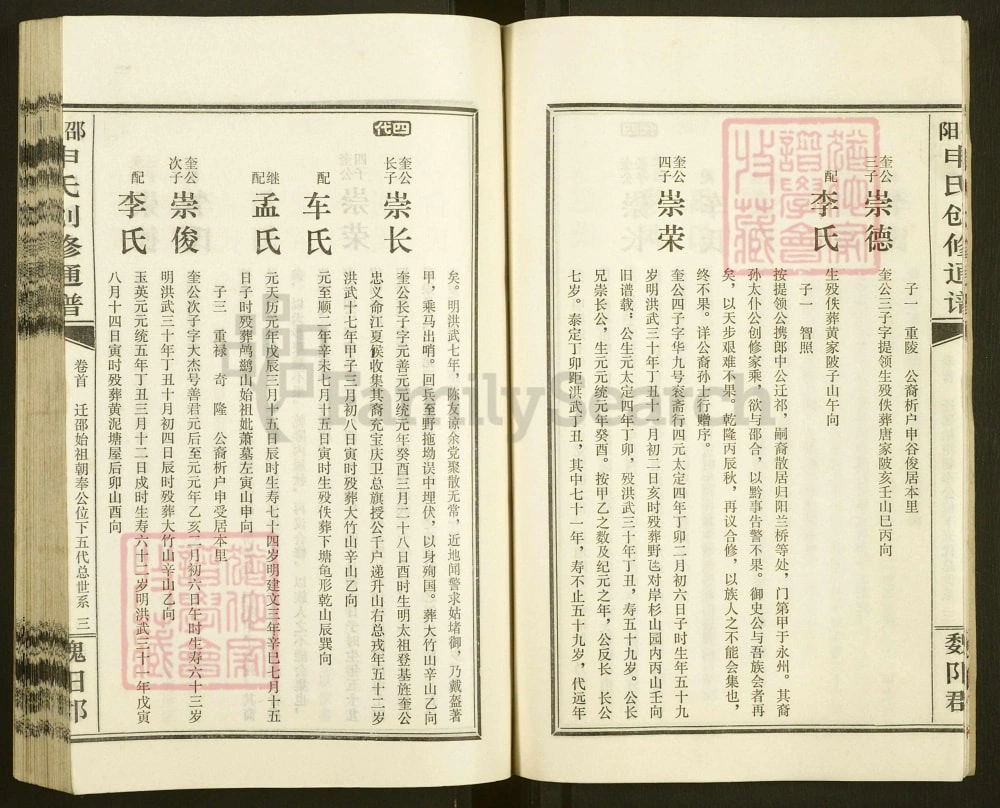 阳申氏创修通谱
魏阳郡
子一 重陵 公裔析户申谷俊居本里
奎公三子 崇德
奎公三子字提领生殁佚葬唐家陂亥壬山巳丙向
配 李氏
生殁佚葬黄家陂子山午向
子一 智照
按提领公携郎中公迁祁，嗣裔散居归阳兰桥等处，门第甲于永州。其裔
孙太仆公创修家乘，欲与邵合，以黔事告警不果。御史公与吾族会者再
矣，以天步艰难不果。乾隆丙辰秋，再议合修，以族人之不能会集也，
终不果。详公裔孙士行赠序。
奎公四子 崇荣
奎公四子字华九号衮斋行四元太定四年丁卯二月初六日子时生年五十九
岁明洪武三十年丁丑十一月初二日亥时殁葬野 对岸杉山园内丙山壬向
旧谱载：公生元太定四年丁卯，殁洪武三十年丁丑，寿五十九岁。公长
兄崇长公，生元元统元年癸酉。按甲乙之数及纪元之年，公反长 长公
七岁。泰定丁卯距洪武丁丑，其中七十一年，寿不止五十九岁，代远年
四代
矣。明洪武七年，陈友谅余党聚散无常，近地闻警求姑堵御，乃戴盔著
甲，乘马出哨。回兵至野拖坳误中埋伏，以身殉国。葬大竹山辛山乙向
奎公长子 崇长
奎公长子字元善元元统元年癸酉三月二十八日酉时生明太祖登基旌奎公
忠义命江夏候收集其裔充宝庆卫总旗授公千户递升山右总戎年五十二岁
洪武十七年甲子三月初八日寅时殁葬大竹山辛山乙向
配 车氏
元至顺二年辛未七月十五日寅时生殁佚葬下塘龟形乾山辰巽向
继配 孟氏
元天历元年戊辰三月十五日辰时生寿七十四岁明建文三年辛巳七月十五
日子时殁葬鸬鹚山始祖妣萧墓左寅山申向
子三 重禄 奇 隆 公裔析户申受居本里
奎公次子 崇俊
奎公次子字大杰号善君元后至元元年乙亥二月初六日午时生寿六十三岁
明洪武三十年丁丑十月初四日辰时殁葬大竹山辛山乙向
配 李氏
玉英元元统五年丁丑三月十二日戌时生寿六十二岁明洪武三十一年戊寅
八月十四日寅时殁葬黄泥塘屋后卯山酉向
邵申氏创修通谱
卷首 迁邵始祖朝奉公位下五代总世系 三
FamilySearch